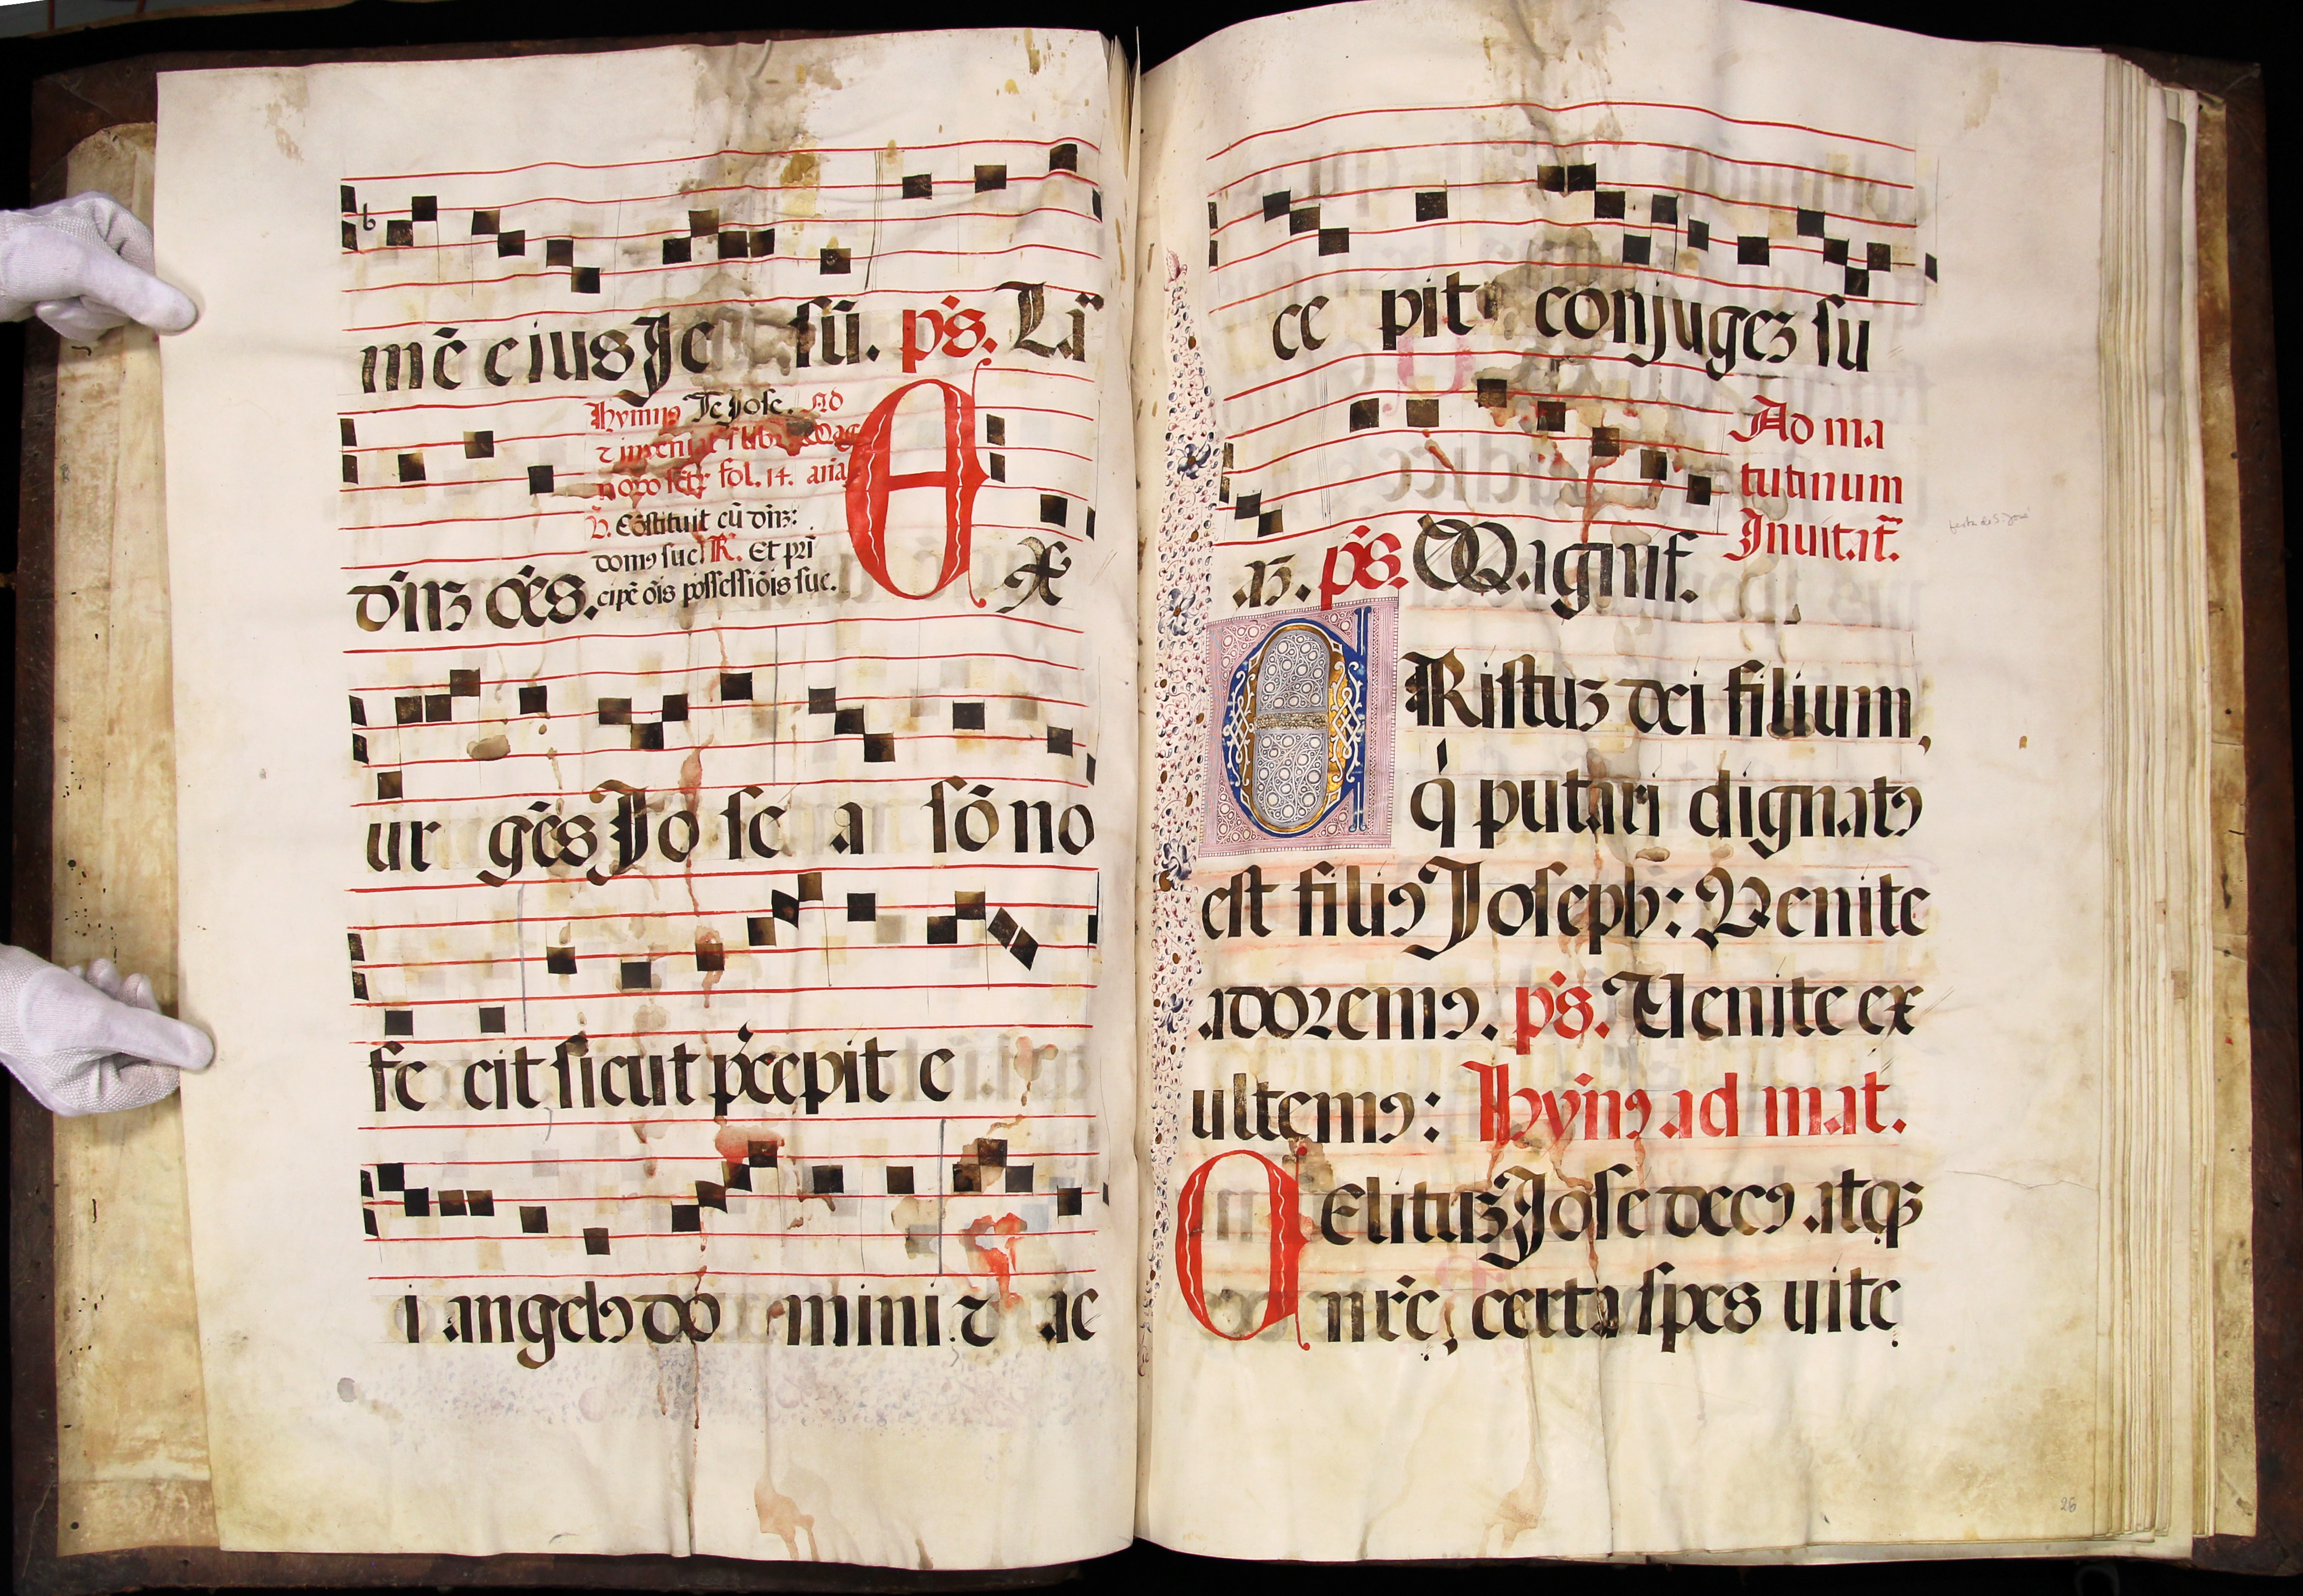 mē eius Je sū. ps. Lā
Hymnꝯ Te Jose. Ad
fol. 14. aña
℣. Cōstituit eū dñꝫ:
domꝯ sue. ℟. Et pri
dñꝫ oēs. cipē oīs possessiōis sue.
Ex
ur gēs Jo se a sō no
fe cit sicut p̄cepit e
i angelꝯ do mini ⁊ ac
ce pit conjugeꝫ su
Ad ma
tutinum
Inuitat̄.
aꝫ. ps. Magnif.
CRistuꝫ dei filium,
q̇ putari dignatꝯ
est filiꝯ Joseph: Venite
adoremꝯ. ps. Uenite ex
ultemꝯ: Hymꝯ ad mat.
CElituꝫ Jose decꝯ atqꝫ
nr̄e, certa spes uite
26